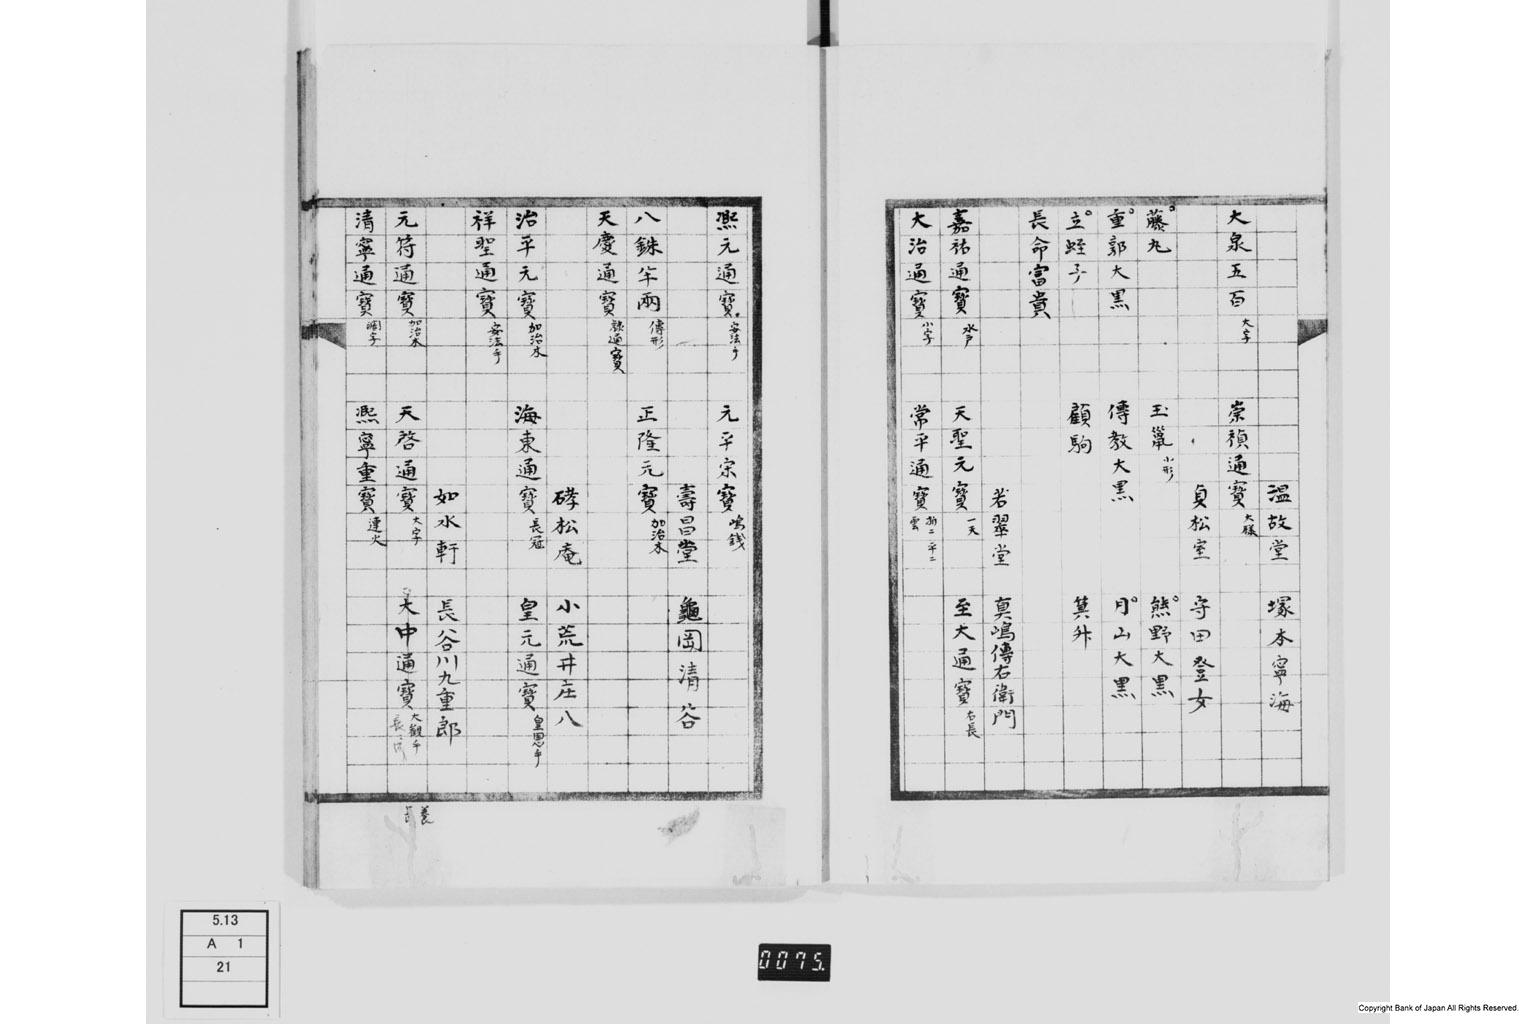 温故堂 塚本寧海
大泉五百 大字 崇禎通寳 大様
貞松室 守田登女
藤丸 玉嵐 小形 熊野大黒
重郭大黒 傳教大黒 月山大黒
立蛭子 顧駒 箕舛
長命富貴
若翠堂 真嶋傳右衛門
嘉祐通寳 水戸 天聖元寳 一天 至大通寳 右長
大治通寳 小字 常平通寳
凞元通寳 安法手 元平宗寳 嶋銭
壽昌堂 龜岡清谷
八銖半兩 傳形 正隆元寳 加治木
天慶通寳
硣松庵 小荒井庄八
治平元寳 加治木 海東通寳 長冠 皇元通寳 皇恩手
祥聖通寳 安法手
如水軒 長谷川九重郎
元符通寳 加治木 天啓通寳 大字 大中通寳 大観手
清寧通寳 凞寧重寳 連火
5.13
A 1
21
0075.
Copyright Bank of Japan All Rights Reserved.